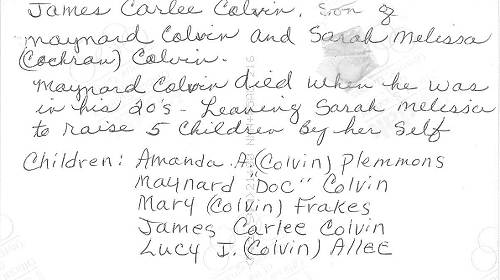 James Carlee Colvin, son of
maynard Colvin and Sarah melissa
(Cochran) Colvin.
maynard Colvin died when he was
in his 20's - Leaving Sarah melissa
to raise 5 Children By her Self
Children: Amanda A. (Colvin) Plemmons
Maynard "Doc" Colvin
Mary (Colvin) Frakes
James Carlee Colvin
Lucy I. (Colvin) Allee